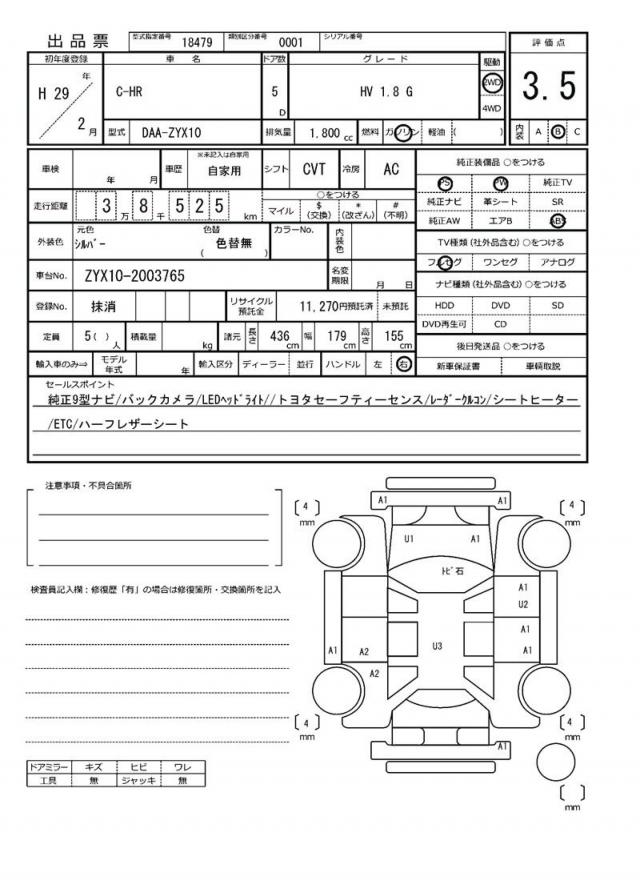 出品票 型式指定番号 18479 類別区分番号 0001 シリアル番号
初年度登録 車名 ドア数 グレード 駆動 評価点
H 29 年 2 月 C-HR 5 D HV 1.8 G 2WD 4WD 3.5
型式 DAA-ZYX10 排気量 1,800 cc 燃料 ガソリン 軽油 ( ) 内装 A B C
車検 年 月 車歴 ※未記入は自家用 自家用 シフト CVT 冷房 AC 純正装備品 ○をつける
PS PW 純正TV
走行距離 3 万 8 千 5 2 5 km ○をつける
マイル $ (交換) * (改ざん) # (不明)
純正ナビ 革シート SR
純正AW エアB ABS
外装色 元色 シルバー 色替 ( 色替無 ) カラーNo. 内装色
TV種類 (社外品含む) ○をつける
フルセグ ワンセグ アナログ
車台No. ZYX10-2003765 名変期限 月 日
ナビ種類 (社外品含む) ○をつける
登録No. 抹消 リサイクル預託金 11,270円預託済 未預託
HDD DVD SD
DVD再生可 CD
定員 5( ) 人 積載量 kg 諸元 長さ 436 cm 幅 179 cm 高さ 155 cm
後日発送品 ○をつける
輸入車のみ⇒ モデル年式 年 輸入区分 ディーラー 並行 ハンドル 左 右
新車保証書 車輌取説
セールスポイント
純正9型ナビ/バックカメラ/LEDヘッドライト//トヨタセーフティーセンス/レーダークルコン/シートヒーター
/ETC/ハーフレザーシート
注意事項・不具合箇所
検査員記入欄：修復歴「有」の場合は修復箇所・交換箇所を記入
〔 4 〕 mm A1 A1 〔 4 〕 mm
U1 A1
トビ石
A1
U2
A1
A1 A2 U3 A1
A2
〔 4 〕 mm A1 〔 4 〕 mm
〔 〕 mm
ドアミラー キズ ヒビ ワレ
工具 無 ジャッキ 無